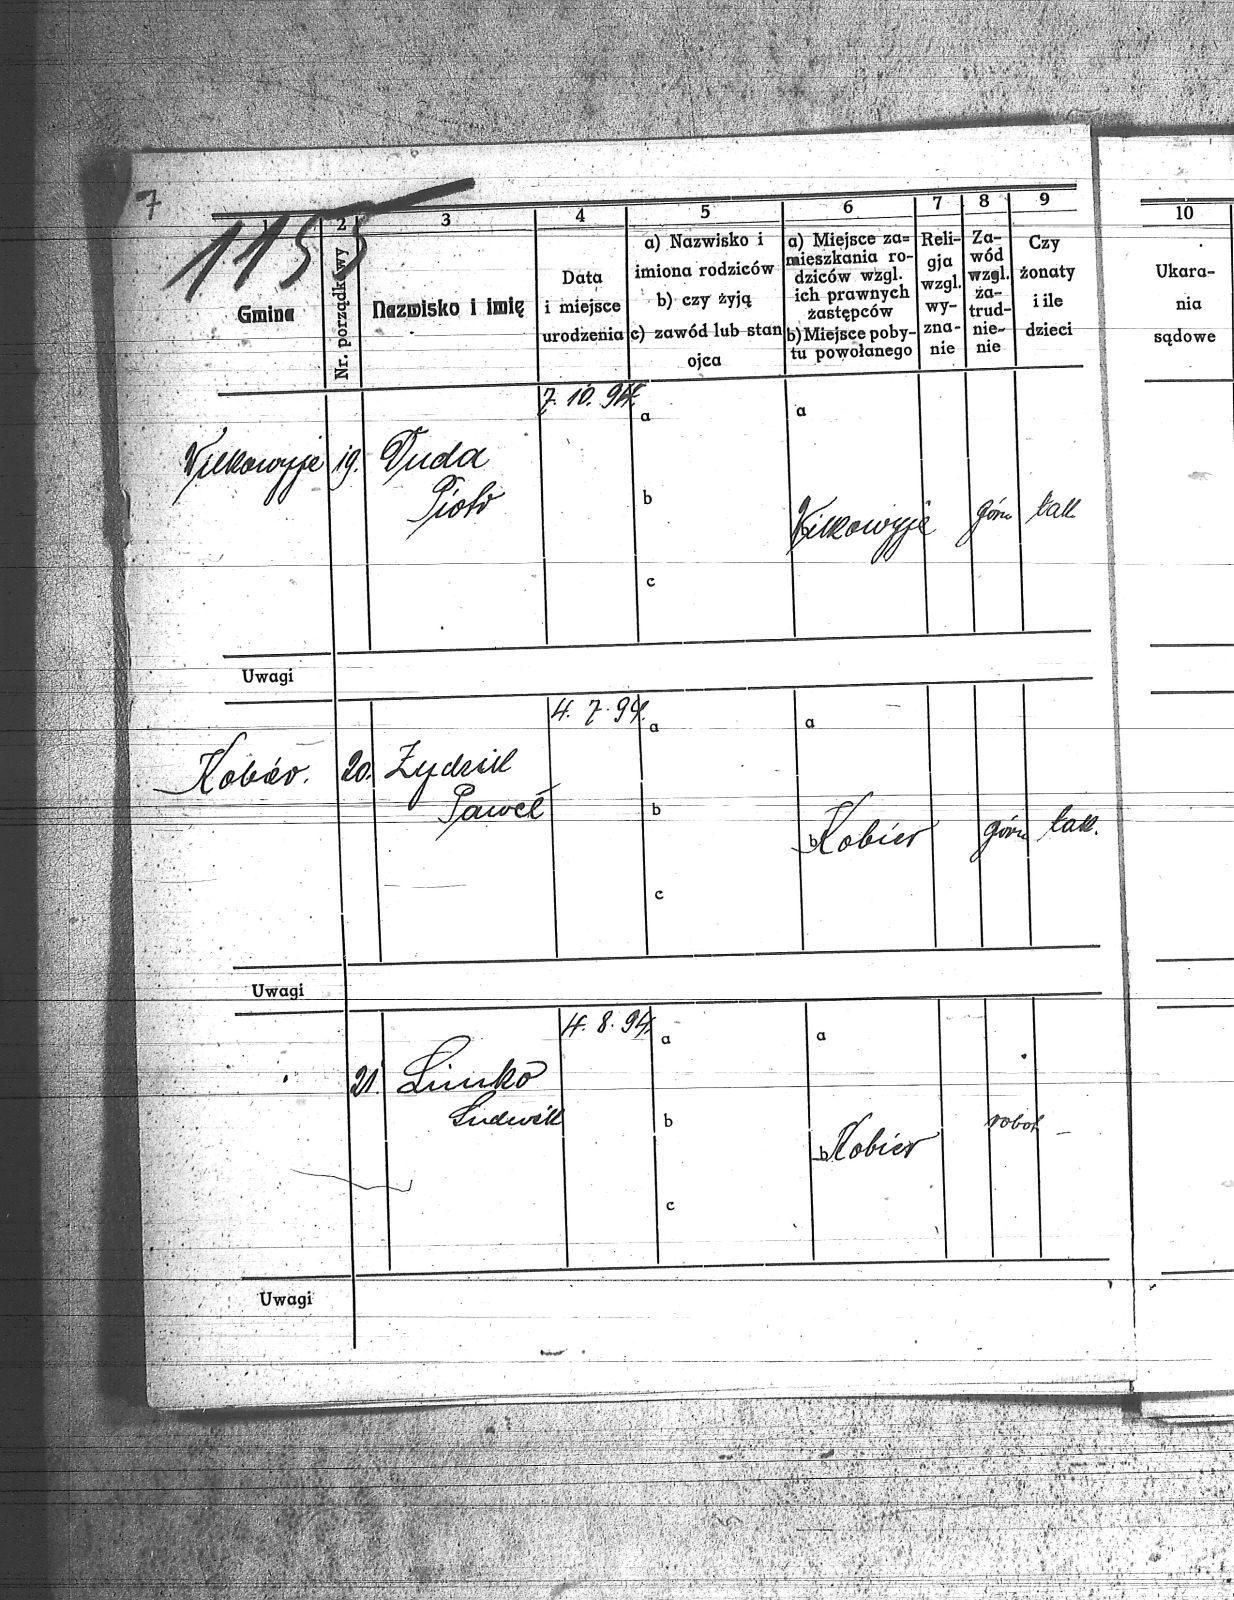 7
1155
1
2
3
4
5
6
7
8
9
10
Gmina
Nr. porządkowy
Nazwisko i imię
Data
i miejsce
urodzenia
a) Nazwisko i
imiona rodziców
b) czy żyją
c) zawód lub stan
ojca
a) Miejsce za=
mieszkania ro-
dziców wzgl.
ich prawnych
zastępców
b) Miejsce poby-
tu powołanego
Reli-
gja
wzgl.
wy-
zna-
nie
Za-
wód
wzgl.
za-
trud-
nie-
nie
Czy
żonaty
i ile
dzieci
Ukara-
nia
sądowe
7. 10. 94.
a
a
Wilkowyje 19. Duda
Piotr
b
b Wilkowyje górn tak
c
Uwagi
4. 7. 94.
a
a
Kobiór. 20. Żydzik
Paweł
b
b Kobiór górn tak.
c
Uwagi
4. 8. 94.
a
a
21. Simko
Ludwik
b
b Kobiór robot –
c
Uwagi